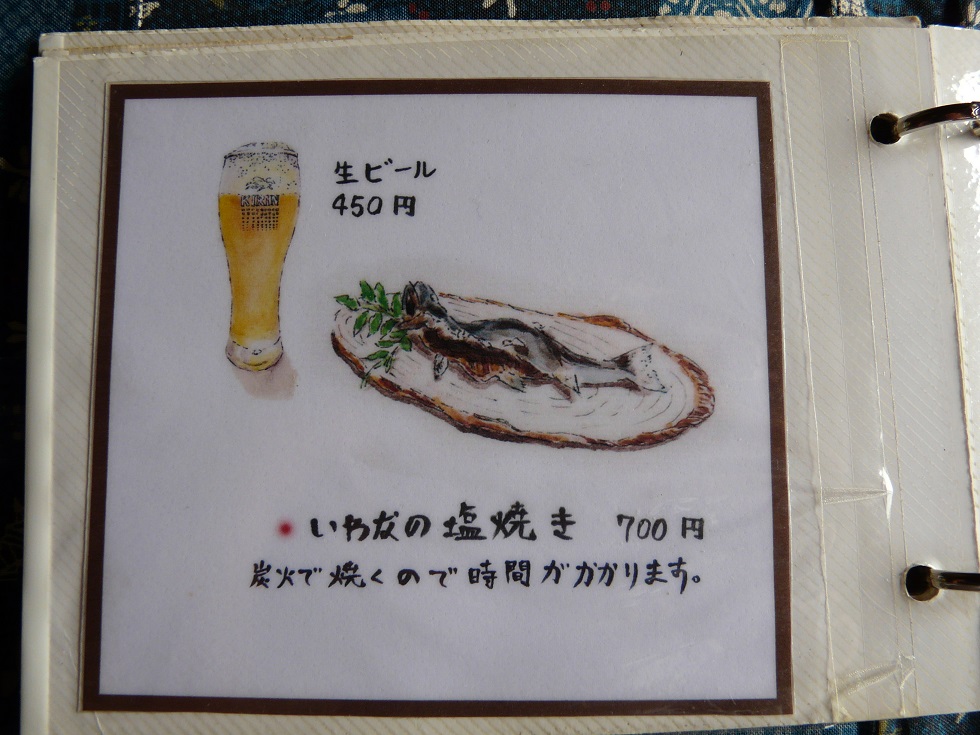 KIRIN
生ビール
450円
いわなの塩焼き 700円
炭火で焼くので時間がかかります。